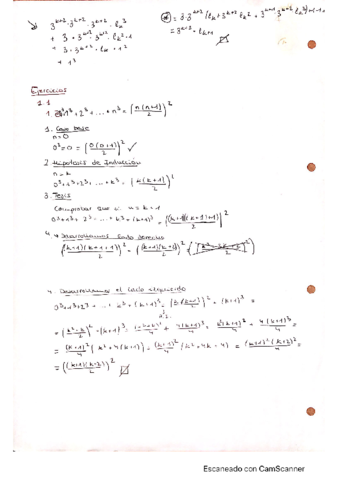 3^{k+2} · 3^{k+2} · 3^{k+2} · l_k^3
+ 3 · 3^{k+2} · 3^{k+2} · l_k^2 · 1
+ 3 · 3^{k+2} · l_k · 1^2
+ 1^3
= 3^{k+3} · l_{k+1}
Ejercicios
2.1
1. 0^3 + 1^3 + 2^3 + ... + n^3 = [n(n+1)/2]^2
1. Caso Base
n=0
0^3 = 0 = [0(0+1)/2]^2 ✓
2. Hipótesis de Inducción
n=k
0^3+1^3+2^3+ ... + k^3 = [k(k+1)/2]^2
3. Tesis
Comprobar que n = k+1
0^3+1^3+ 2^3 + ... + k^3 + (k+1)^3 = [(k+1)(k+1)+1)/2]^2
4. Desarrollamos lado derecho
((k+1)(k+1+1)/2)^2 = ((k+1)(k+2)/2)^2
4. Desarrollamos el lado izquierdo
0^3+1^3+2^3+ ... + k^3 + (k+1)^3 = (k(k+1)/2)^2 + (k+1)^3 =
= (k+1)^2/4 (k^2+4(k+1)) = (k+1)^2/4 (k^2+4k+4) = (k+1)^2(k+2)^2/4 =
= ((k+1)(k+2)/2)^2
Escaneado con CamScanner